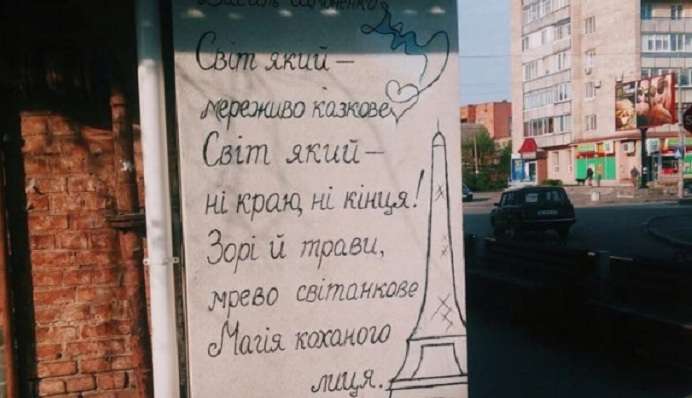 Василь Симоненко
Світ який –
мереживо казкове,
Світ який –
ні краю, ні кінця!
Зорі й трави,
мрево світанкове
Магія коханого
лиця.